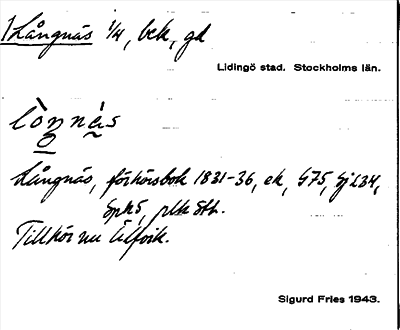 1 Långnäs 1/4, bek, gd
Lidingö stad. Stockholms län.
lòŋnä̀s
Långnäs, förhörsbok 1831-36, ek, G75, Sj234,
Spk5, plk Sth.
Tillhör nu Elfvik.
Sigurd Fries 1943.